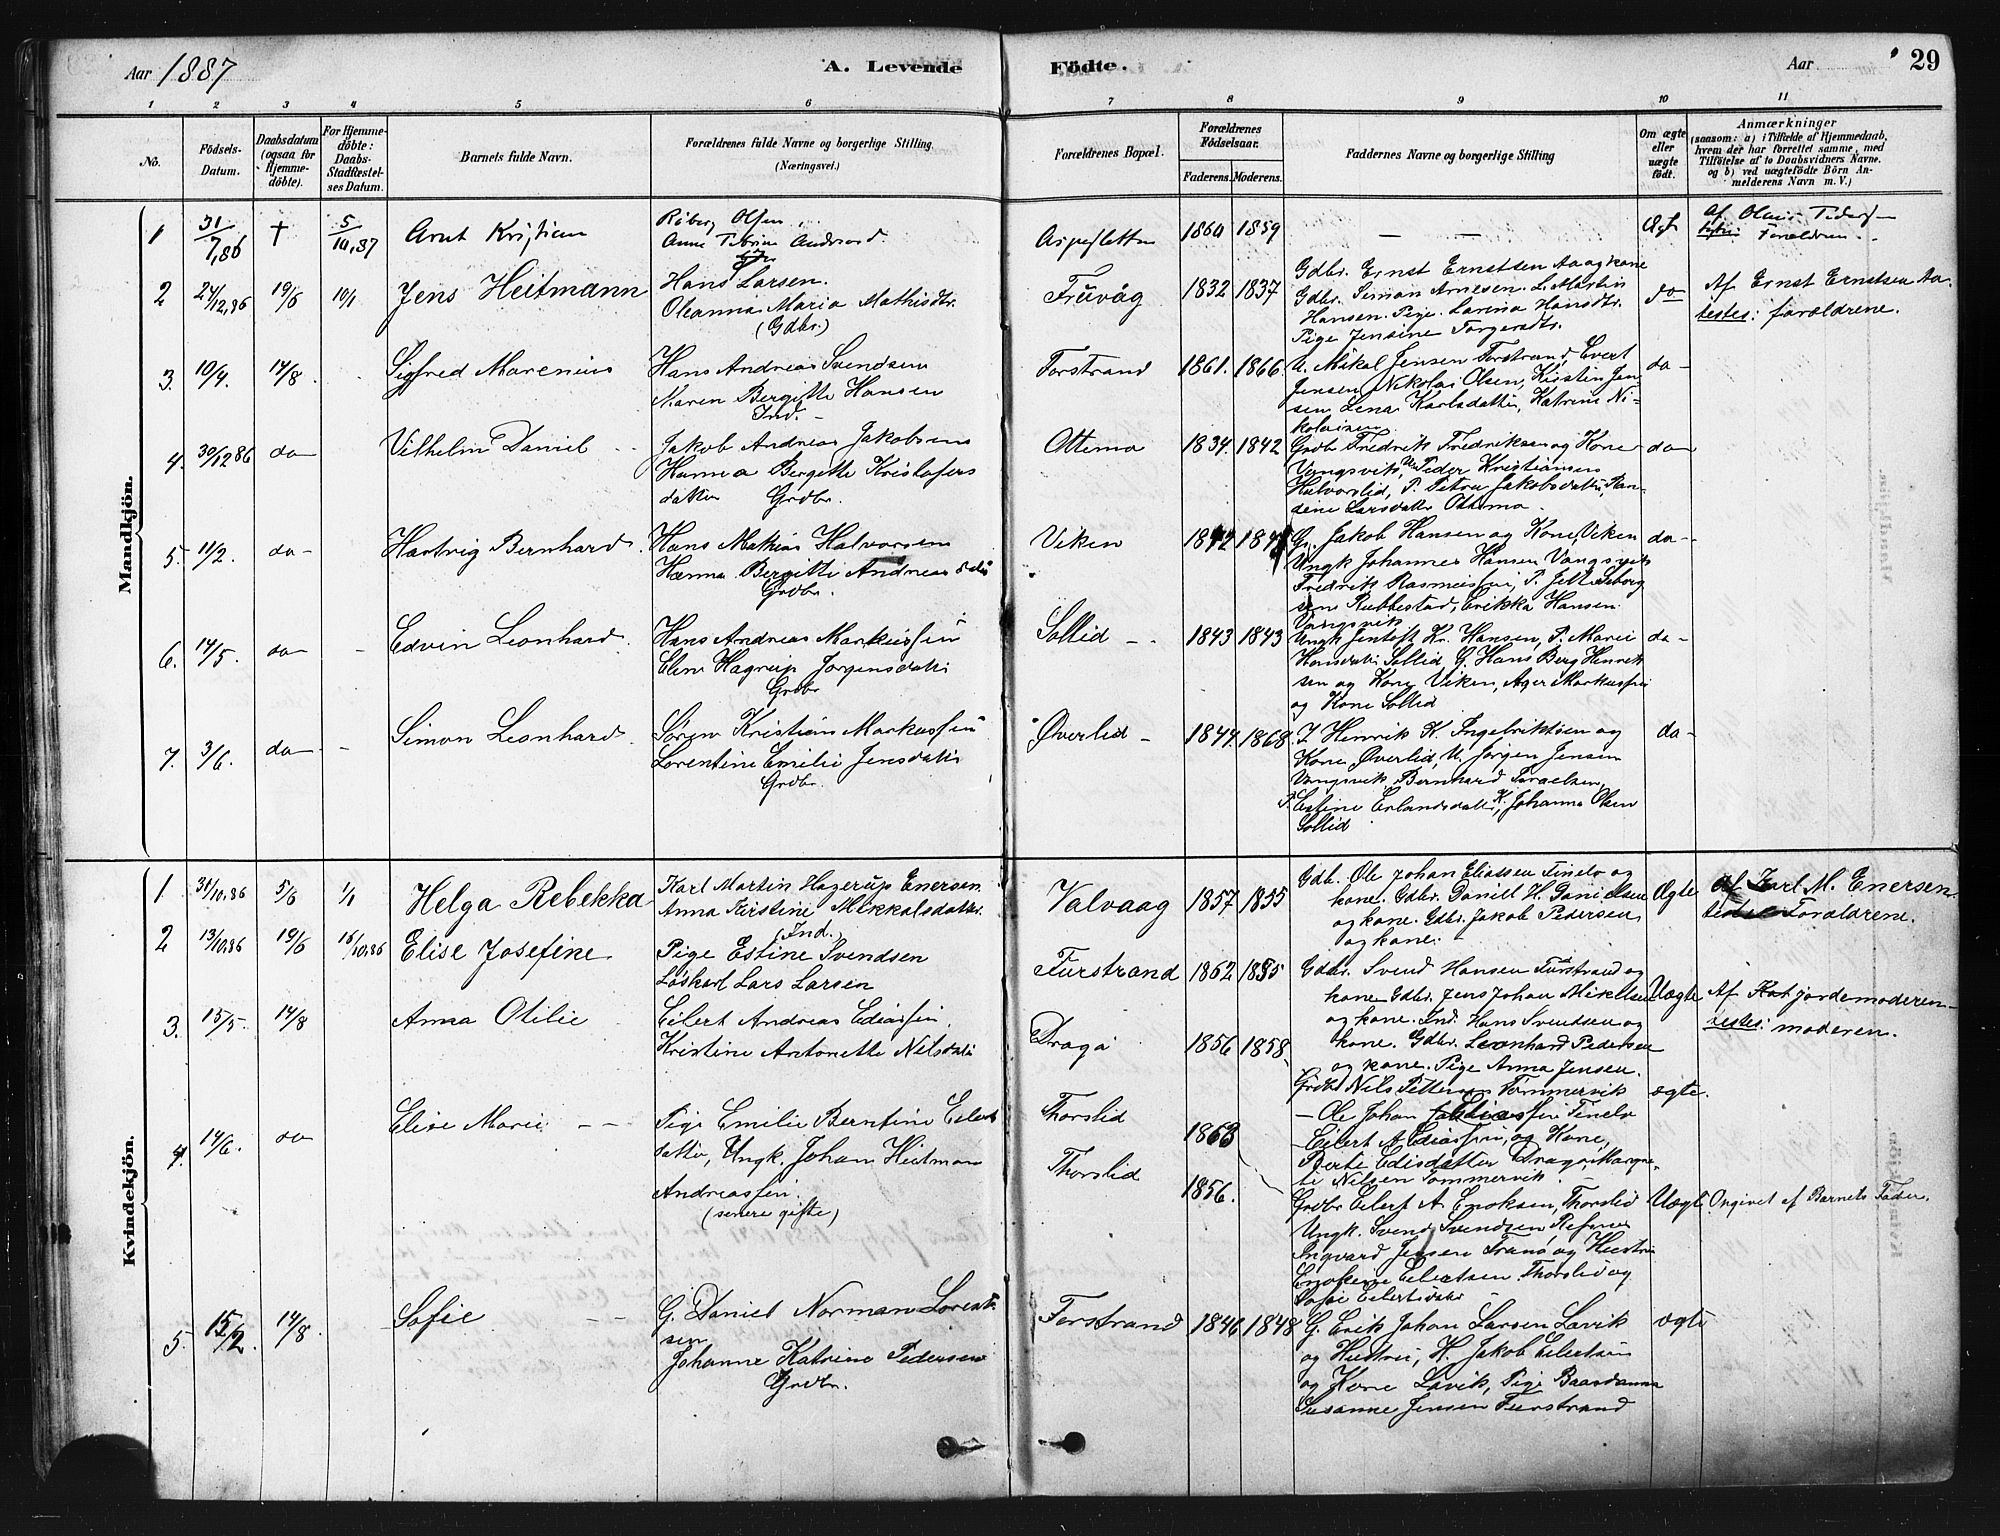 Aar 1887
A. Levende Födte.
Aar
29
1 2 3 4 5 6 7 8 9 10 11
No.
Födsels-Datum.
Daabsdatum (ogsaa for Hjemme-döbte).
For Hjemme-döbte: Daabs-Stadfæstel-ses Datum.
Barnets fulde Navn.
Forældrenes fulde Navne og borgerlige Stilling. (Næringsvei.)
Forældrenes Bopæl.
Forældrenes Födselsaar.
Faderens. Moderens.
Faddernes Navne og borgerlige Stilling
Om ægte eller uægte födt.
Anmærkninger
(saasom: a) i Tilfælde af Hjemmedaab, hvem der har forrettet samme, med Tilföielse af to Daabsvidners Navne. og b) ved uægtefödte Börn An-melderens Navn m. V.)
Mandkjön.
1 31/7,86 † 5/10,87 Arnt Kristian
Olsen
Anne
1860 1859 — —
Af Olaus Pedersen
Forældrene.
2 24/12,86 19/6 10/1 Jens Heitmann
Hans Larsen.
Oleanna Maria Mathisdtr.
(Gdbr.)
Fruvåg 1832 1837
Gdbr. Ernst Ernstsen Aa og kone
Gdbr. Simon Arnesen. L. Martin
Hansen. Pige Larina Hansdtr.
Pige Jensine Torgersdtr.
do
Af Ernst Ernstsen Aa.
testes: forældrene.
3. 10/4. 14/8. Sigfred Marenius
Hans Andreas Svendsen
Maren Bergitte Hansen
Ind.
Forstrand 1861. 1866
U. Mikal Jensen Forstrand, Evert
Jensen, Nikolai Olsen, Kistin Jen-
sen Lena Karlsdatter, Katrine Ni-
kolaisen
da-
4. 30/12 86 da- Vilhelm Daniel
Jakob Andreas Jakobsen
Hanna Bergitte Kristofers
datter Grdbr.
Ottema 1834. 1842
Grdb Fredrik Fredriksen og Kone
Vangsvik, U. Peder Kristiansen
Halvorslid, P. Petra Jakobsdatter, Han-
dene Larsdatter Ottema.
da-
5. 11/2. da- Hartvig Bernhard.
Hans Mathias Halvorsen
Hanna Bergitte Andreasdatter
Grdbr.
Viken
G. Jakob Hansen og Kone, Viken
Ungk Johannes Hansen Vangsvik
Fredrik Rasmussen, P.
Rubbestad, Erikka Hansen
Vangsvik
da-
6. 14/5. da- Edvin Leonhard
Hans Andreas Markussen
Elen Hagrup Jørgensdatter
Grdbr
Sollid - 1843 1843
Ungk Jentoft Kr. Hansen, P. Marie
Hansdatter Sollid, G. Hans Berg Henrik
sen og Kone Viken, Ager Markussen
og Kone Sollid
da-
7. 3/6. da- Simon Leonhard
Søren Kristian Markussen
Lorentine Emilie Jensdatter
Grdbr.
Øverlid - 1844. 1868
I Henrik K. Ingebriktsen og
Kone Øverlid, U. Jørgen Jensen
Vangsvik, Bernhard Israelsen,
P. Estine Erlandsdatter, K. Johanna Olsen
Sollid
da-
Kvindekjön.
1. 31/10.86 5/6 1/1 Helga Rebekka
Karl Martin Hagerup Enersen
Anna Kirstine Mikkalsdatter.
(Ind.)
Valvaag 1857 1855
Gdb. Ole Johan Eliassen Finelv og
kone. Gdbr. Daniel H. Danielsen
og kone. Gdbr. Jakob Pedersen
og kone.
Ægte
Af Karl M. Enersen
Forældrene.
2 13/10.86 19/6 16/10.86 Elise Josefine
Pige Estine Svendsen
Løskarl Lars Larsen
Furstrand 1862 1835
Gdbr. Svend Hansen Furstrand og
kone Gdbr. Jens Johan Mikelsen
og kone. Ind. Hans Svendsen og
kone. Gdbr. Leonhard Pedersen
og kone. Pige Anna Jensen.
Uægte
Af gjordemoderen
testes: moderen.
3. 15/5. 14/8 Anna Otilie
Eilert Andreas Ediassen
Kristine Antonette Nilsdatter
Draga 1856 1858
Grdbr Nils Pettersen Tømmervik
— Ole Johan Eliassen Finelv
— Eilert A Ediassen, og Kone,
Berte Edisdatter Draga, Margre-
te Nilsen Tømmervik.
ægte.
4. 14/6. da Elise Marie - -
Pige Emilie Berntine Eilerts
datter, Ungk. Johan Heitman
Andreassen.
(senere gifte)
Thorslid 1863
Thorslid 1856.
Grdbr Eilert A. Enoksen, Thorslid
Ungk. Svend Svendsen Refsnes
Ingvard Jensen Tranø, og Hustru
Enokine Eilertsen. Thorslid og
Sofie Eilertsdatter
Uægte
Angivet af Barnets Fader.
5. 15/2. 14/8. Sofie - -
G. Daniel Norman Lorent-
sen
Johanne Katrine Pedersen
Grdbr.
Forstrand 1846 1848
G. Erik Johan Larsen Lavik
og Hustru, H. Jakob Eilertsen
og Kone Lavik, Pige
Susanne Jensen Furstrand
ægte